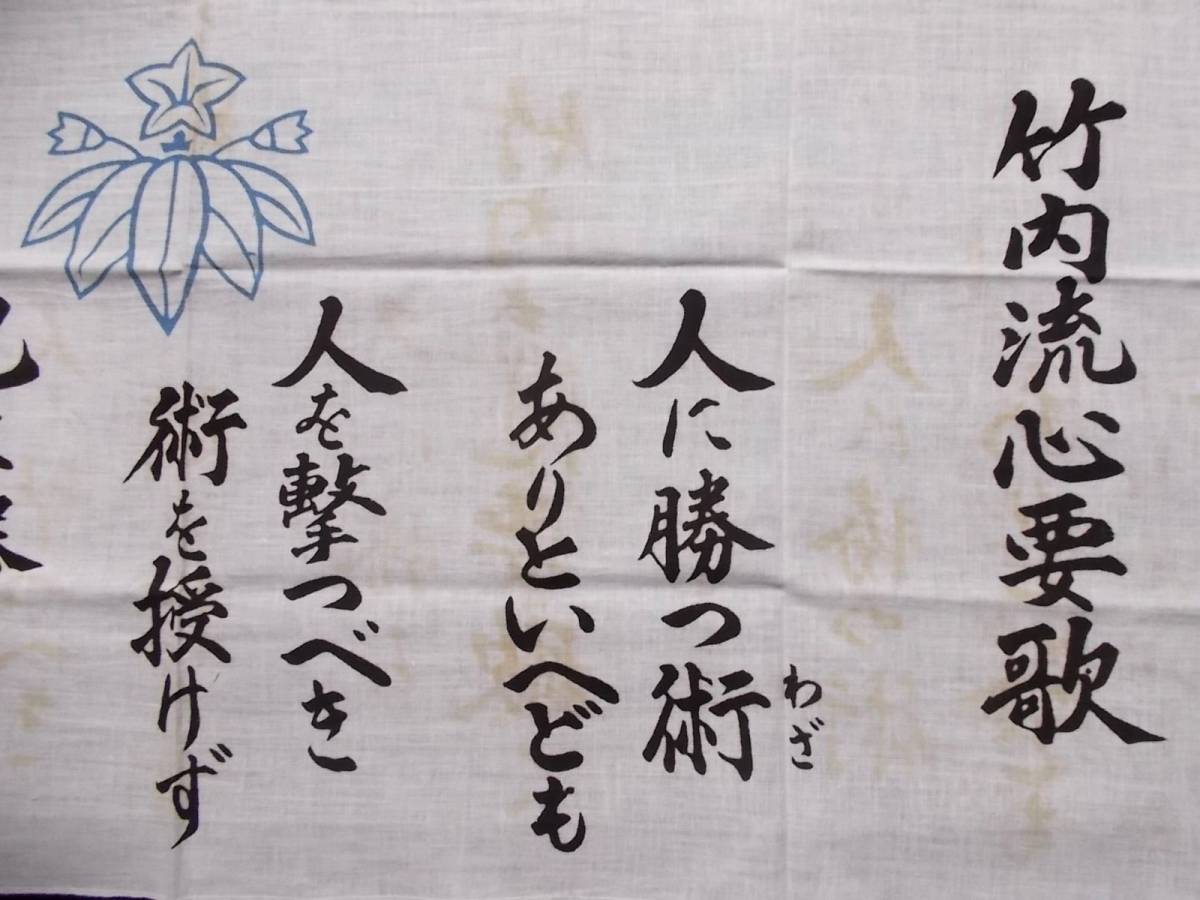 竹内流心要歌
人に勝つ術
わざ
ありといへども
人を撃つべき
術を授けず